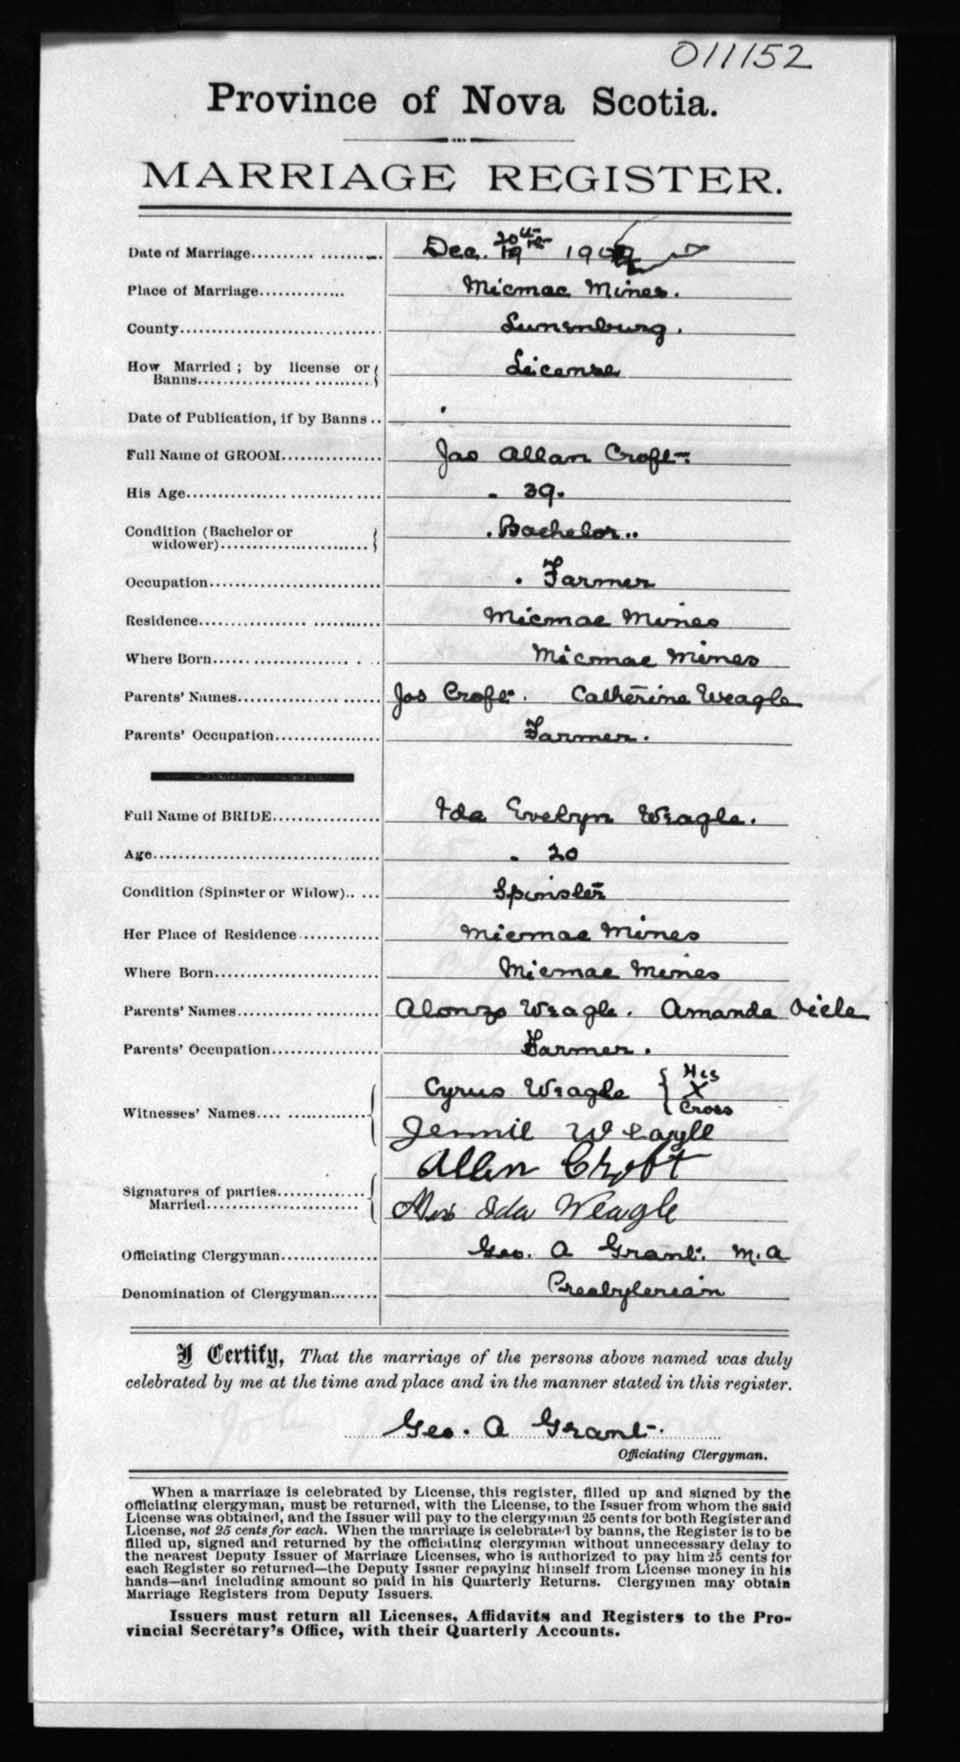 011152
Province of Nova Scotia.
MARRIAGE REGISTER.
Date of Marriage Dec. 20th 19th 190
Place of Marriage Micmac Mines.
County Lunenburg.
How Married; by license or Banns License
Date of Publication, if by Banns
Full Name of GROOM Jas Allan Croft
His Age 39.
Condition (Bachelor or widower) Bachelor
Occupation Farmer
Residence Micmac Mines
Where Born Micmac Mines
Parents' Names Jas Croft. Catherine Weagle
Parents' Occupation Farmer.
Full Name of BRIDE Ida Evelyn Weagle.
Age 20
Condition (Spinster or Widow) Spinster
Her Place of Residence Micmac Mines
Where Born Micmac Mines
Parents' Names Alonzo Weagle. Amanda Oicle
Parents' Occupation Farmer.
Witnesses' Names Cyrus Weagle { His X Cross
Jennie Weagle
Signatures of parties Married Allen Croft
Miss Ida Weagle
Officiating Clergyman Geo. A Grant. M.A
Denomination of Clergyman Presbyterian
I Certify, That the marriage of the persons above named was duly
celebrated by me at the time and place and in the manner stated in this register.
Geo. A Grant.
Officiating Clergyman.
When a marriage is celebrated by License, this register, filled up and signed by the
officiating clergyman, must be returned, with the License, to the Issuer from whom the said
License was obtained, and the Issuer will pay to the clergyman 25 cents for both Register and
License, not 25 cents for each. When the marriage is celebrated by banns, the Register is to be
filled up, signed and returned by the officiating clergyman without unnecessary delay to
the nearest Deputy Issuer of Marriage Licenses, who is authorized to pay him 25 cents for
each Register so returned—the Deputy Issuer repaying himself from License money in his
hands—and including amount so paid in his Quarterly Returns. Clergymen may obtain
Marriage Registers from Deputy Issuers.
Issuers must return all Licenses, Affidavits and Registers to the Pro-
vincial Secretary's Office, with their Quarterly Accounts.